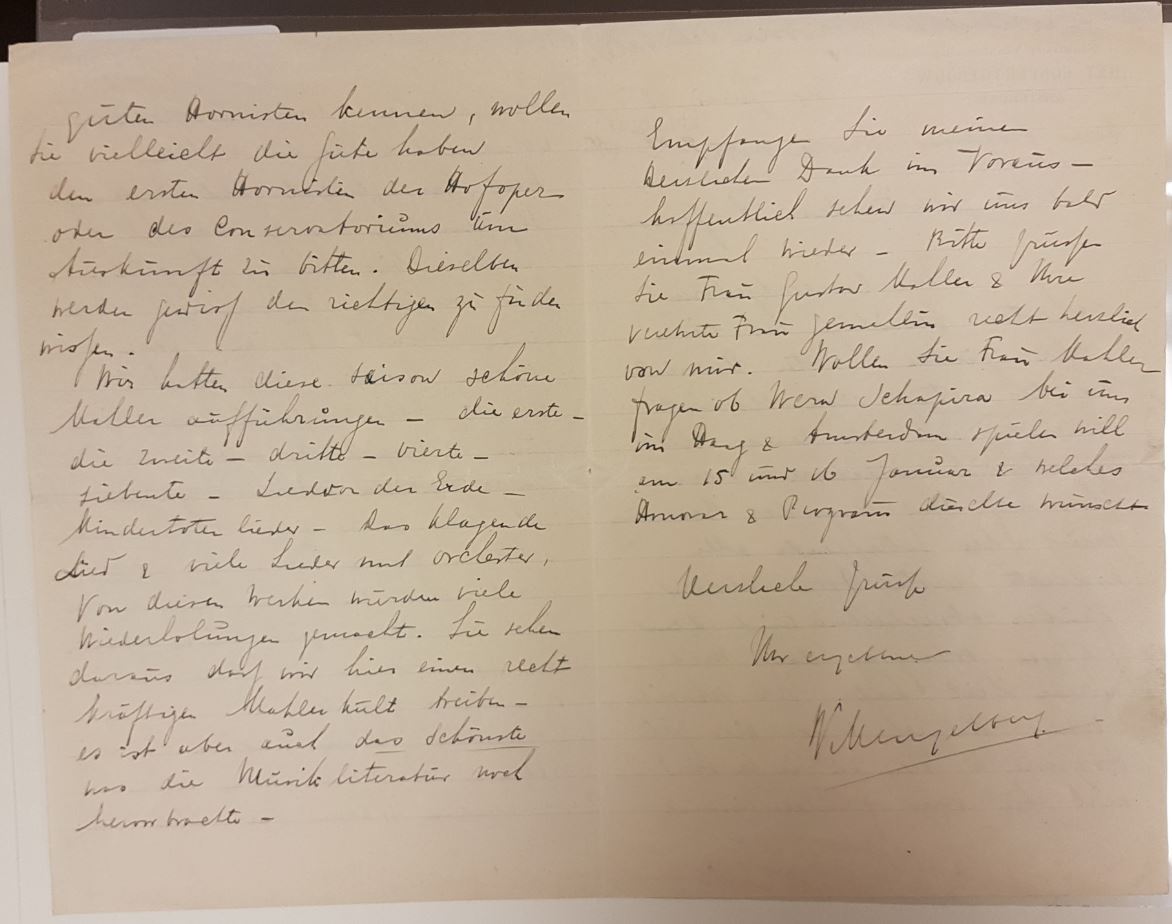 guten Hornisten kennen, wollen
Sie vielleicht die Güte haben
den ersten Hornisten der Hofoper
oder des Conservatoriums um
Auskunft zu bitten. Dieselben
werden gewiss den richtigen zu finden
wissen.
Wir hatten diese Saison schöne
Mahler aufführungen – die erste –
die zweite – dritte – vierte –
siebente – Lied von der Erde –
Kindertotenlieder – Das klagende
Lied & viele Lieder mit Orchester.
Von diesen Werken wurden viele
Wiederholungen gemacht. Sie sehen
daraus dass wir hier einen recht
kräftigen Mahler kult treiben –
es ist aber auch das Schönste
was die Musikliteratur noch
hervorbrachte –
Empfangen Sie meinen
herzlichen Dank im Voraus –
hoffentlich sehen wir uns bald
einmal wieder – Bitte grüssen
Sie Frau Gustav Mahler & Ihre
verehrte Frau gemahlin recht herzlich
von mir. Wollen Sie Frau Mahler
fragen ob Wera Schapira bei uns
im Haag & Amsterdam spielen will
am 15 und 16 Januar & welches
Honorar & Program dieselbe wünscht
Herzliche Grüsse
Ihr ergebener
W Mengelberg